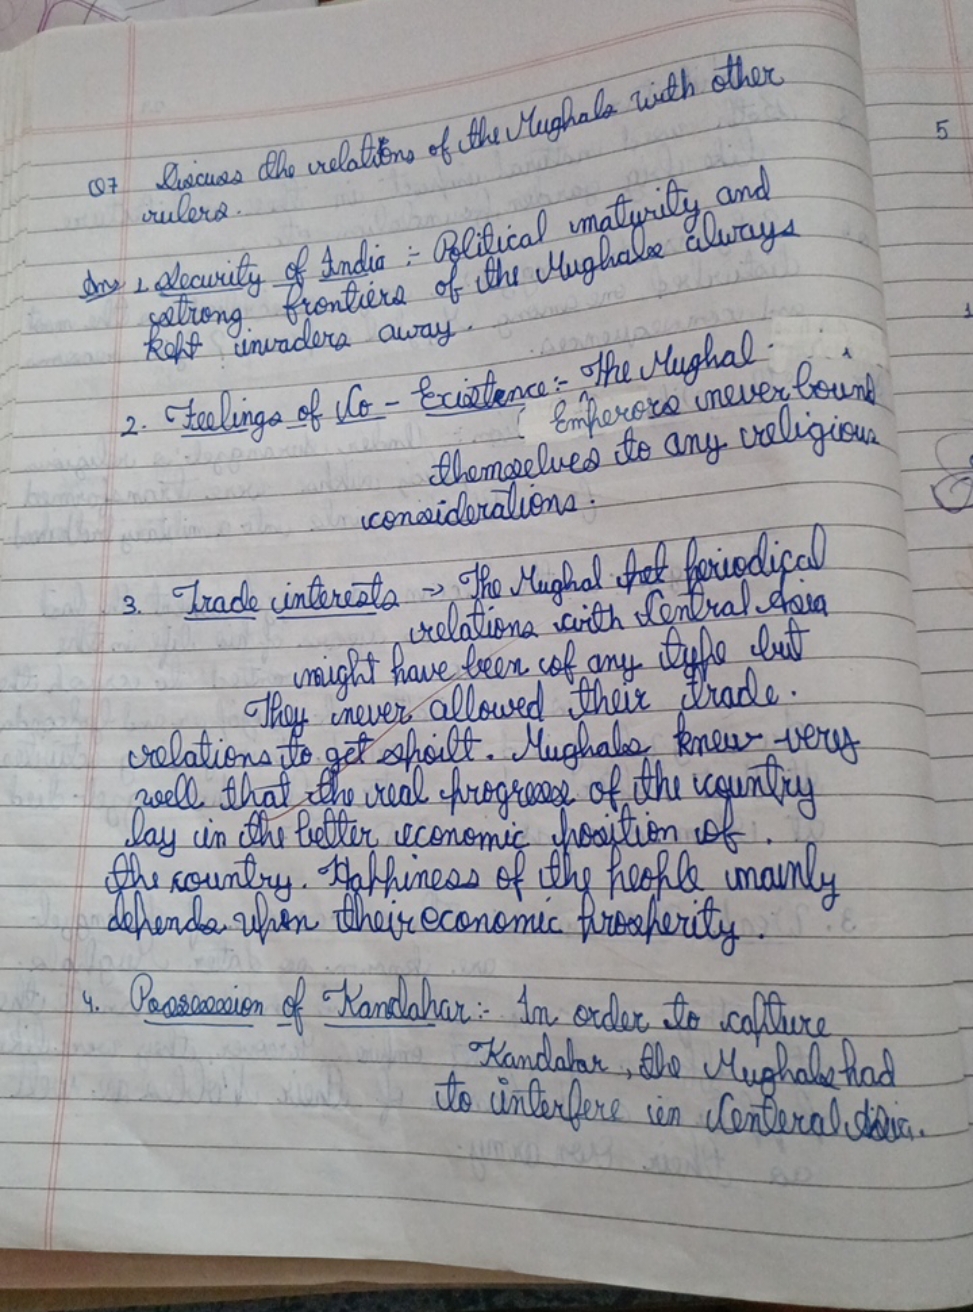 Q7 Discuss the relations of the Mughals with other
rulers.
Ans 1. Security of India :- Political maturity and
strong frontiers of the Mughals always
kept invaders away.
2. Feelings of Co-Existence :- The Mughal
Emperors never bound
themselves to any religious
considerations.
3. Trade interests → The Mughal periodical
relations with Central Asia
might have been of any type but
They never allowed their trade.
relations to get spoilt. Mughals knew very
well that the real progress of the country
lay in the better economic position of.
the country. Happiness of the people mainly
depends upon their economic prosperity.
4. Possession of Kandahar :- In order to capture
Kandahar, the Mughals had
to interfere in Centeral Asia.
5